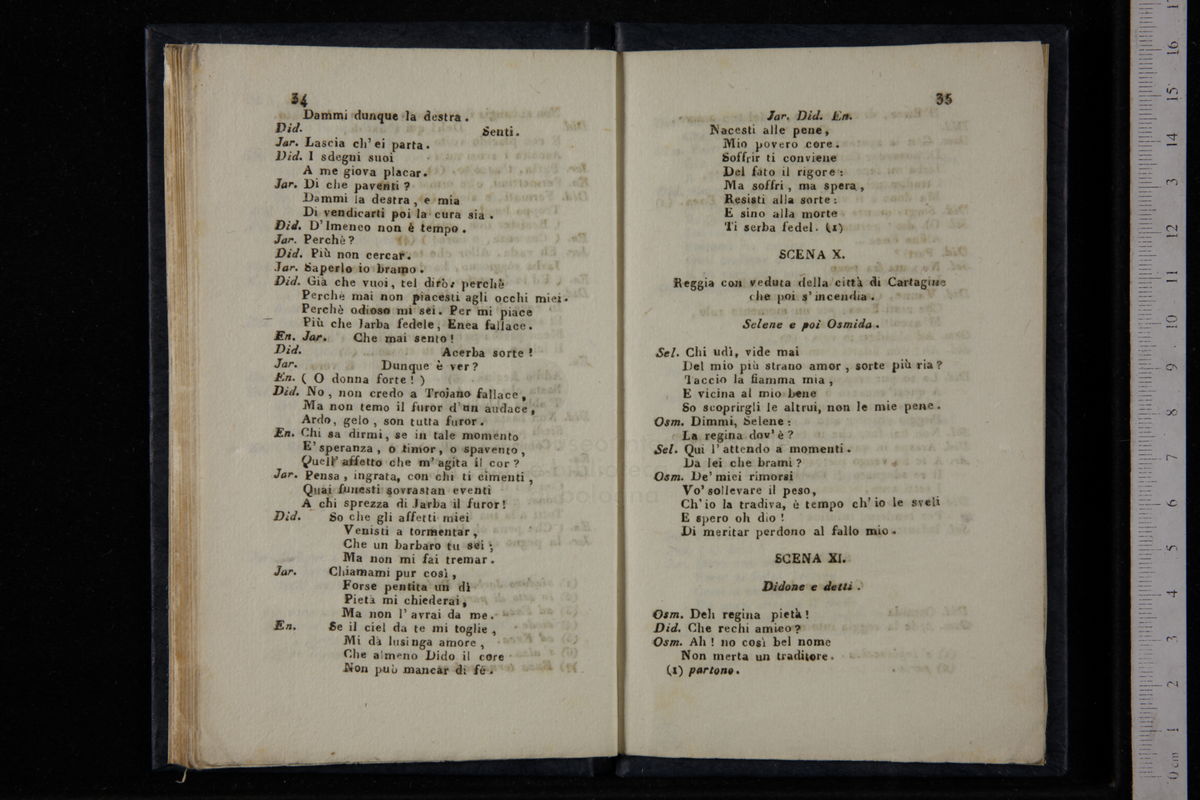 34
Dammi dunque la destra.
Did. Senti.
Jar. Lascia ch' ei parta.
Did. I sdegni suoi
A me giova placar.
Jar. Di che paventi ?
Dammi la destra, e mia
Di vendicarti poi la cura sia.
Did. D' Imeneo non è tempo.
Jar. Perchè ?
Did. Più non cercar.
Jar. Saperlo io bramo.
Did. Già che vuoi, tel dirò: perchè
Perchè mai non piacesti agli occhi miei.
Perchè odioso mi sei. Per mi piace
Più che Jarba fedele, Enea fallace.
En. Jar. Che mai sento !
Did. Acerba sorte !
Jar. Dunque è ver ?
En. ( O donna forte ! )
Did. No, non credo a Trojano fallace,
Ma non temo il furor d' un audace,
Ardo, gelo, son tutta furor.
En. Chi sa dirmi, se in tale momento
E' speranza, o timor, o spavento,
Quell' affetto che m' agita il cor ?
Jar. Pensa, ingrata, con chi ti cimenti,
Quai funesti sovrastan eventi
A chi sprezza di Jarba il furor !
Did. So che gli affetti miei
Venisti a tormentar,
Che un barbaro tu sei ;
Ma non mi fai tremar.
Jar. Chiamami pur così,
Forse pentita un dì
Pietà mi chiederai,
Ma non l' avrai da me.
En. Se il ciel da te mi toglie,
Mi dà lusinga amore,
Che almeno Dido il core
Non può mancar di fè.
35
Jar. Did. En.
Nacesti alle pene,
Mio povero core.
Soffrir ti conviene
Del fato il rigore :
Ma soffri, ma spera,
Resisti alla sorte :
E sino alla morte
Ti serba fedel. (1)
SCENA X.
Reggia con veduta della città di Cartagine
che poi s' incendia.
Selene e poi Osmida.
Sel. Chi udì, vide mai
Del mio più strano amor, sorte più ria ?
Taccio la fiamma mia,
E vicina al mio bene
So scoprirgli le altrui, non le mie pene.
Osm. Dimmi, Selene :
La regina dov' è ?
Sel. Qui l' attendo a momenti.
Da lei che brami ?
Osm. De' miei rimorsi
Vo' sollevare il peso,
Ch' io la tradiva, è tempo ch' io le sveli
E spero oh dio !
Di meritar perdono al fallo mio.
SCENA XI.
Didone e detti.
Osm. Deh regina pietà !
Did. Che rechi amico ?
Osm. Ah ! no così bel nome
Non merta un traditore.
(1) partono.